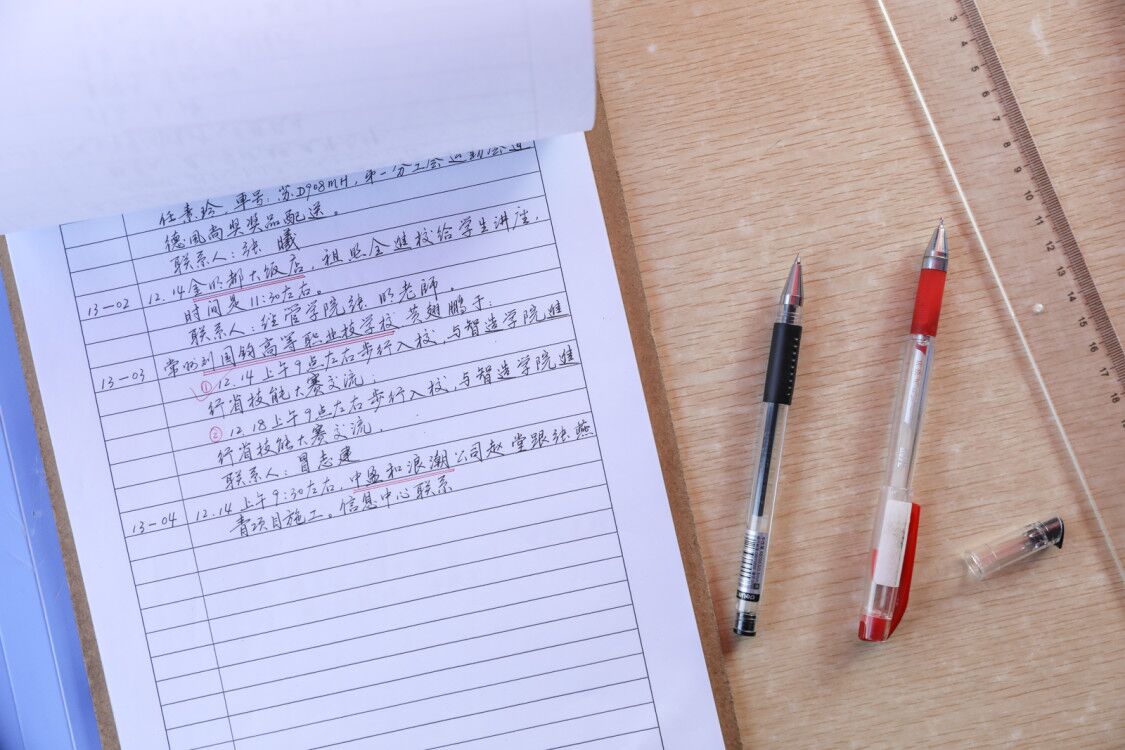 任素玲,车号:苏D908MH,第一分工会运动会道
德风尚奖奖品配送。
联系人:张曦
13-02 12.14金明都大饭店,祖照全进校给学生讲座,
时间是11:30左右。
联系人:经管学院张明老师。
13-03 常州刘国钧高等职业技学校 黄翅鹏于:
① 12.14上午9点左右步行入校,与智造学院进
行省技能大赛交流;
② 12.18上午9点左右步行入校,与智造学院进
行省技能大赛交流.
联系人:冒志建
13-04 12.14上午9:30左右,中盈和浪潮公司赵堂跟张燕
青项目施工。信息中心联系
3 4 5 6 7 8 9 10 11 12 13 14 15 16 17 18